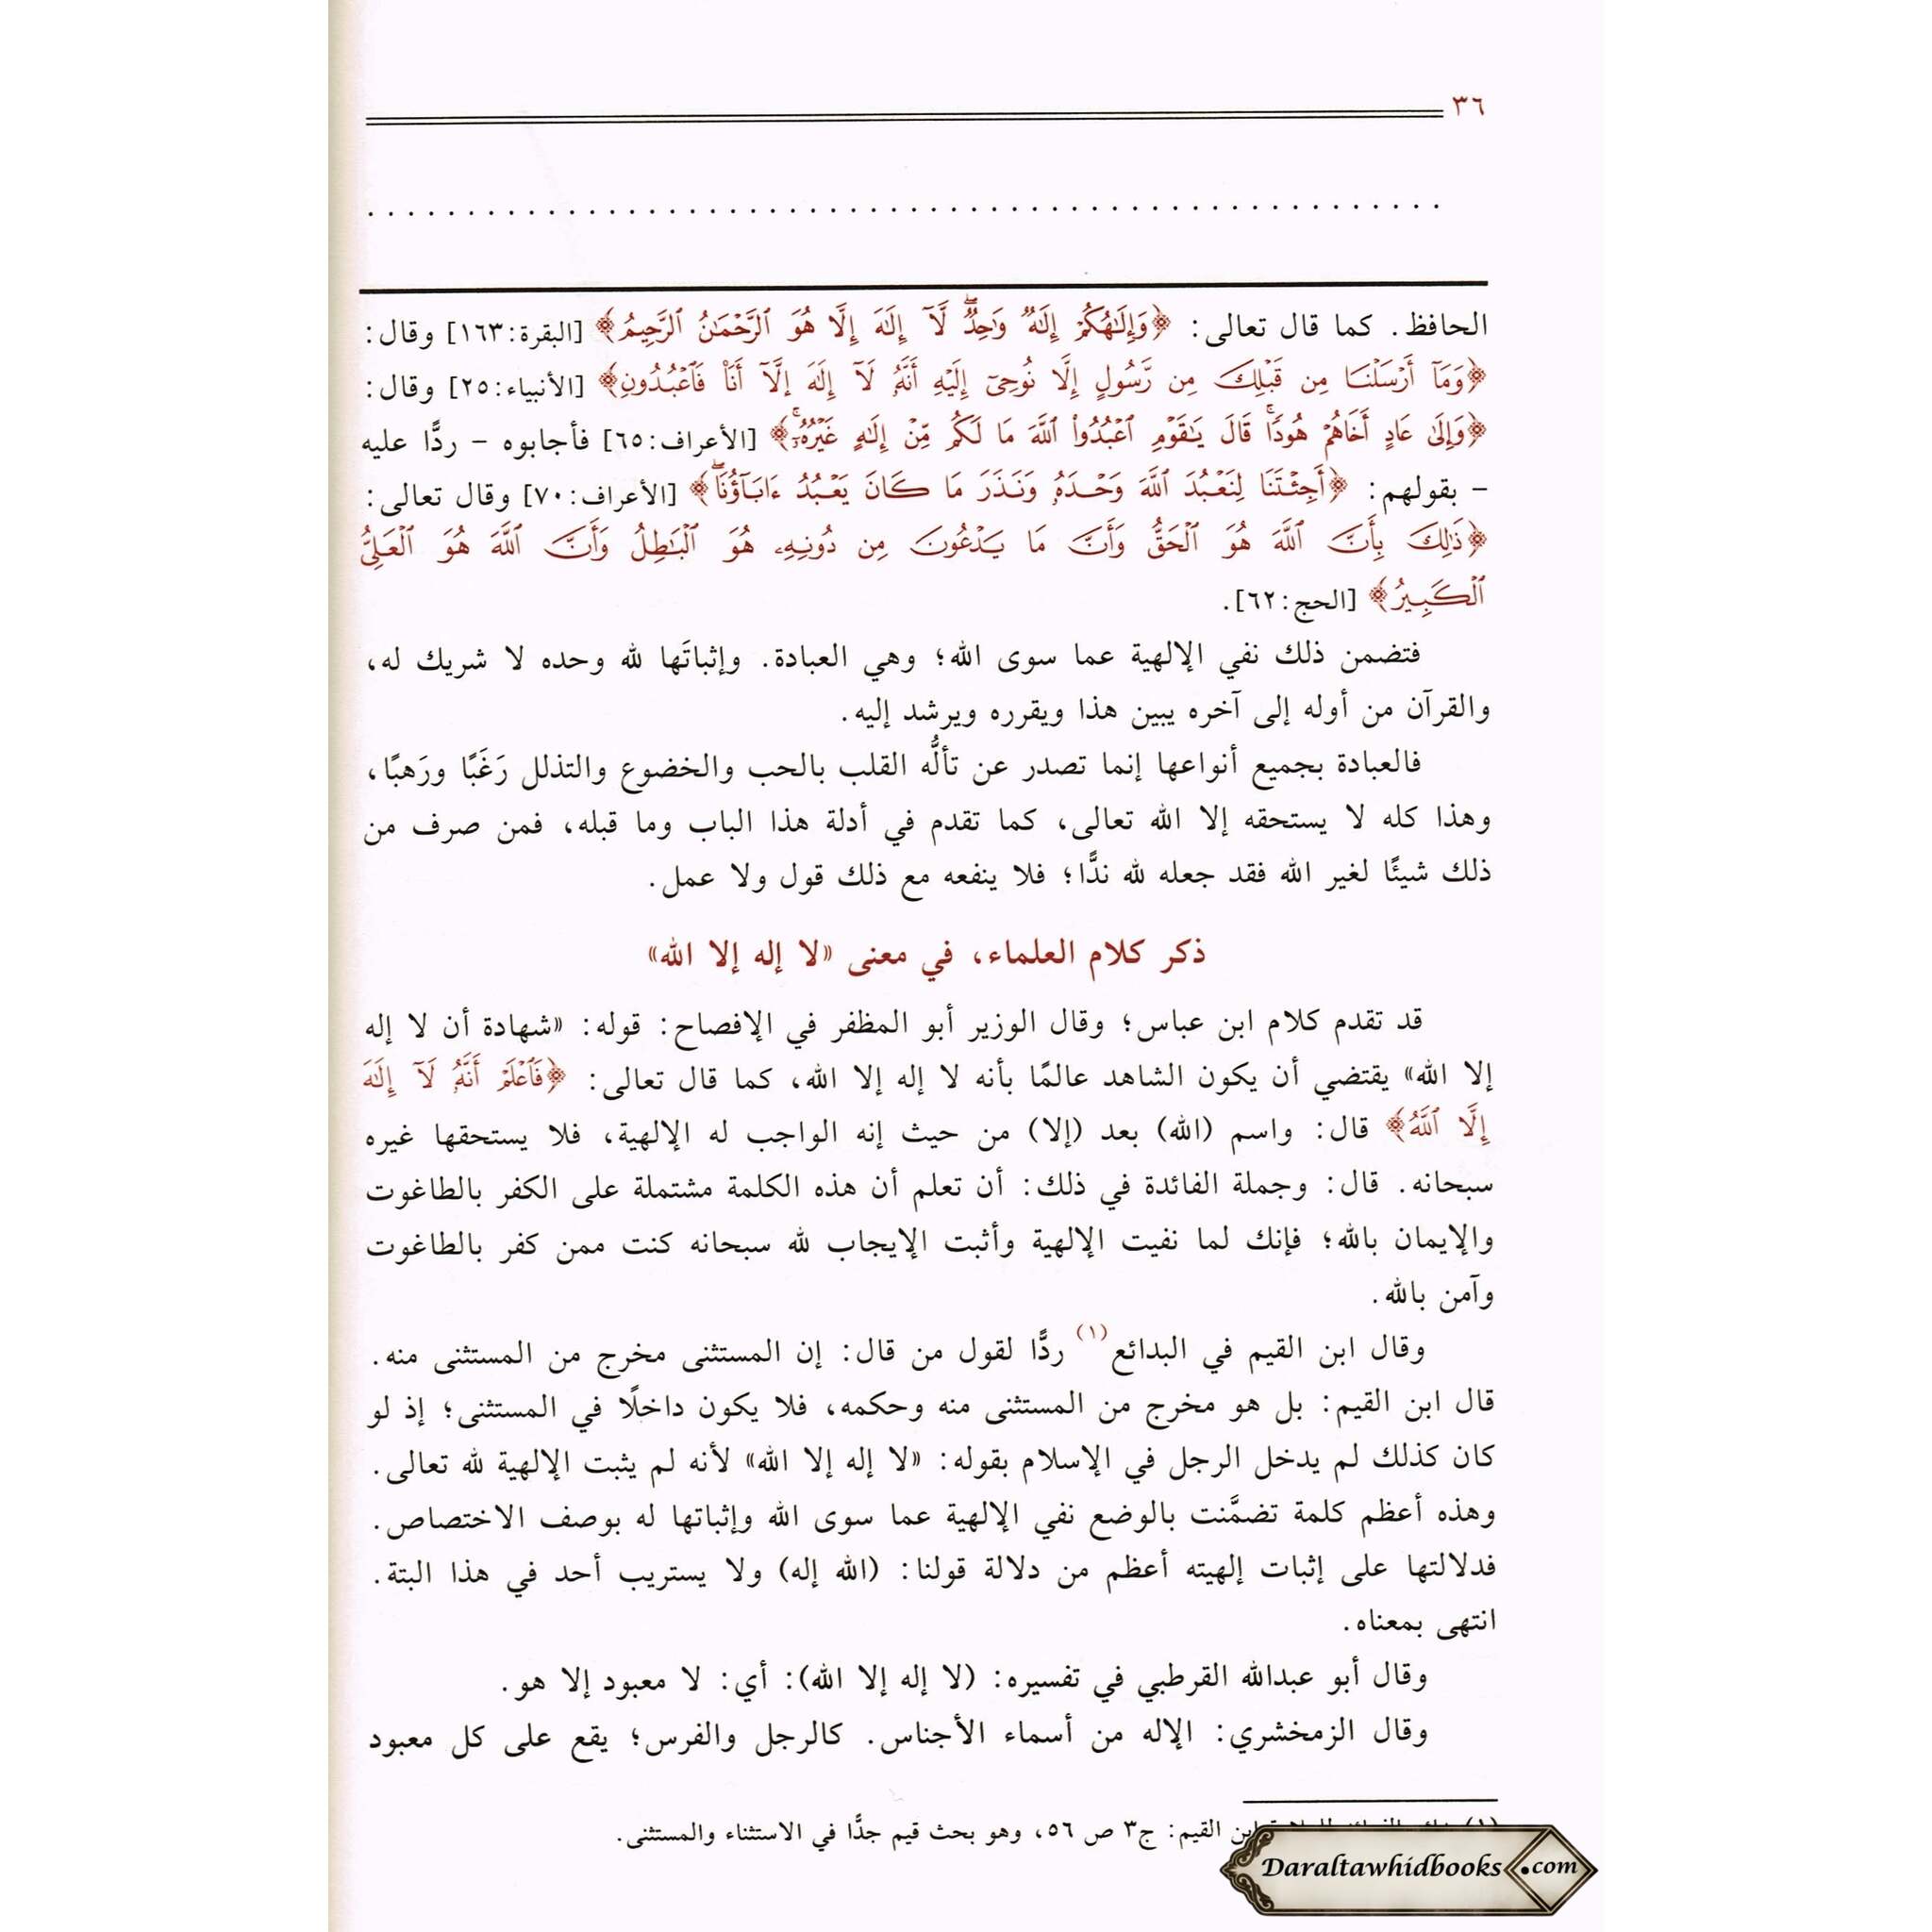 ٣٦
الحافظ. كما قال تعالى: ﴿وَإِلَـٰهُكُمْ إِلَـٰهٌ وَٰحِدٌۖ لَّآ إِلَـٰهَ إِلَّا هُوَ ٱلرَّحْمَـٰنُ ٱلرَّحِيمُ﴾ [البقرة:١٦٣] وقال:
﴿وَمَآ أَرْسَلْنَا مِن قَبْلِكَ مِن رَّسُولٍ إِلَّا نُوحِىٓ إِلَيْهِ أَنَّهُۥ لَآ إِلَـٰهَ إِلَّآ أَنَا۠ فَٱعْبُدُونِ﴾ [الأنبياء:٢٥] وقال:
﴿وَإِلَىٰ عَادٍ أَخَاهُمْ هُودًاۚ قَالَ يَـٰقَوْمِ ٱعْبُدُوا۟ ٱللَّهَ مَا لَكُم مِّنْ إِلَـٰهٍ غَيْرُهُۥٓۚ﴾ [الأعراف:٦٥] فأجابوه – ردًّا عليه
– بقولهم: ﴿أَجِئْتَنَا لِنَعْبُدَ ٱللَّهَ وَحْدَهُۥ وَنَذَرَ مَا كَانَ يَعْبُدُ ءَابَآؤُنَاۖ﴾ [الأعراف:٧٠] وقال تعالى:
﴿ذَٰلِكَ بِأَنَّ ٱللَّهَ هُوَ ٱلْحَقُّ وَأَنَّ مَا يَدْعُونَ مِن دُونِهِۦ هُوَ ٱلْبَـٰطِلُ وَأَنَّ ٱللَّهَ هُوَ ٱلْعَلِىُّ
ٱلْكَبِيرُ﴾ [الحج:٦٢].
فتضمن ذلك نفي الإلهية عما سوى الله؛ وهي العبادة. وإثباتَها لله وحده لا شريك له،
والقرآن من أوله إلى آخره يبين هذا ويقرره ويرشد إليه.
فالعبادة بجميع أنواعها إنما تصدر عن تألُّه القلب بالحب والخضوع والتذلل رَغَبًا ورَهبًا،
وهذا كله لا يستحقه إلا الله تعالى، كما تقدم في أدلة هذا الباب وما قبله، فمن صرف من
ذلك شيئًا لغير الله فقد جعله لله ندًّا؛ فلا ينفعه مع ذلك قول ولا عمل.
ذكر كلام العلماء، في معنى «لا إله إلا الله»
قد تقدم كلام ابن عباس؛ وقال الوزير أبو المظفر في الإفصاح: قوله: «شهادة أن لا إله
إلا الله» يقتضي أن يكون الشاهد عالمًا بأنه لا إله إلا الله، كما قال تعالى: ﴿فَٱعْلَمْ أَنَّهُۥ لَآ إِلَـٰهَ
إِلَّا ٱللَّهُ﴾ قال: واسم (الله) بعد (إلا) من حيث إنه الواجب له الإلهية، فلا يستحقها غيره
سبحانه. قال: وجملة الفائدة في ذلك: أن تعلم أن هذه الكلمة مشتملة على الكفر بالطاغوت
والإيمان بالله؛ فإنك لما نفيت الإلهية وأثبت الإيجاب لله سبحانه كنت ممن كفر بالطاغوت
وآمن بالله.
وقال ابن القيم في البدائع(١) ردًّا لقول من قال: إن المستثنى مخرج من المستثنى منه.
قال ابن القيم: بل هو مخرج من المستثنى منه وحكمه، فلا يكون داخلًا في المستثنى؛ إذ لو
كان كذلك لم يدخل الرجل في الإسلام بقوله: «لا إله إلا الله» لأنه لم يثبت الإلهية لله تعالى.
وهذه أعظم كلمة تضمَّنت بالوضع نفي الإلهية عما سوى الله وإثباتها له بوصف الاختصاص.
فدلالتها على إثبات إلهيته أعظم من دلالة قولنا: (الله إله) ولا يستريب أحد في هذا البتة.
انتهى بمعناه.
وقال أبو عبدالله القرطبي في تفسيره: (لا إله إلا الله): أي: لا معبود إلا هو.
وقال الزمخشري: الإله من أسماء الأجناس. كالرجل والفرس؛ يقع على كل معبود
ابن القيم: ج٣ ص ٥٦، وهو بحث قيم جدًّا في الاستثناء والمستثنى.
Daraltawhidbooks.com